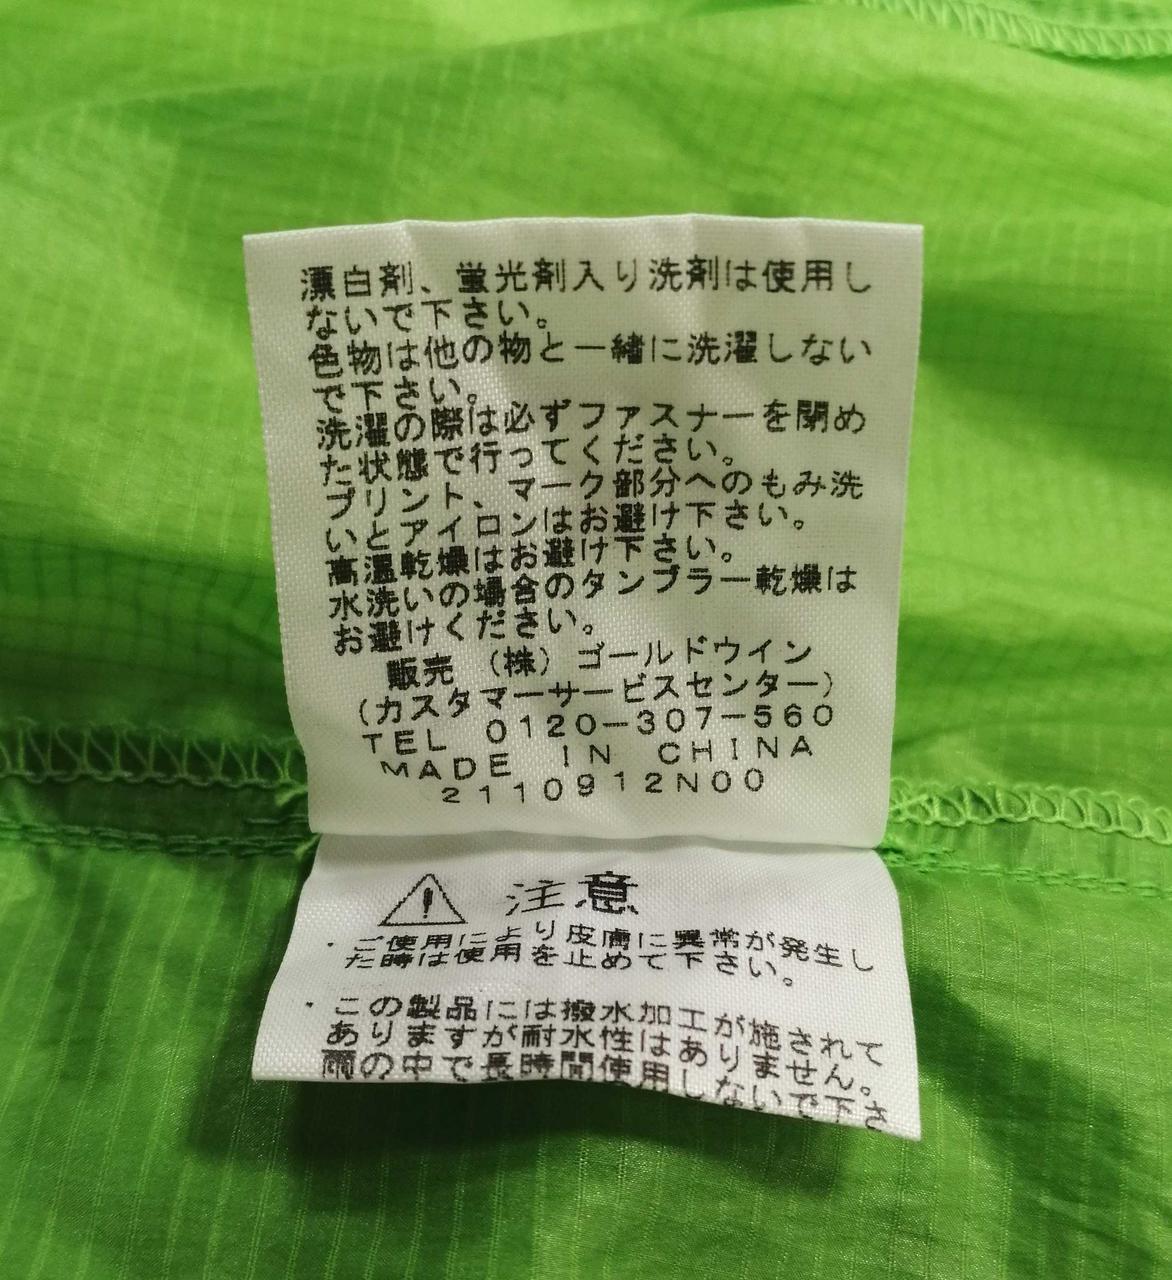 漂白剤、蛍光剤入り洗剤は使用し
ないで下さい。
色物は他の物と一緒に洗濯しない
で下さい。
洗濯の際は必ずファスナーを閉め
た状態で行ってください。
プリント、マーク部分へのもみ洗
いとアイロンはお避け下さい。
高温乾燥はお避け下さい。
水洗いの場合のタンブラー乾燥は
お避けください。
販売 (株) ゴールドウイン
(カスタマーサービスセンター)
TEL 0120-307-560
MADE IN CHINA
2110912N00
注意
・ご使用により皮膚に異常が発生し
た時は使用を止めて下さい。
・この製品には撥水加工が施されて
ありますが耐水性はありません。
雨の中で長時間使用しないで下さ